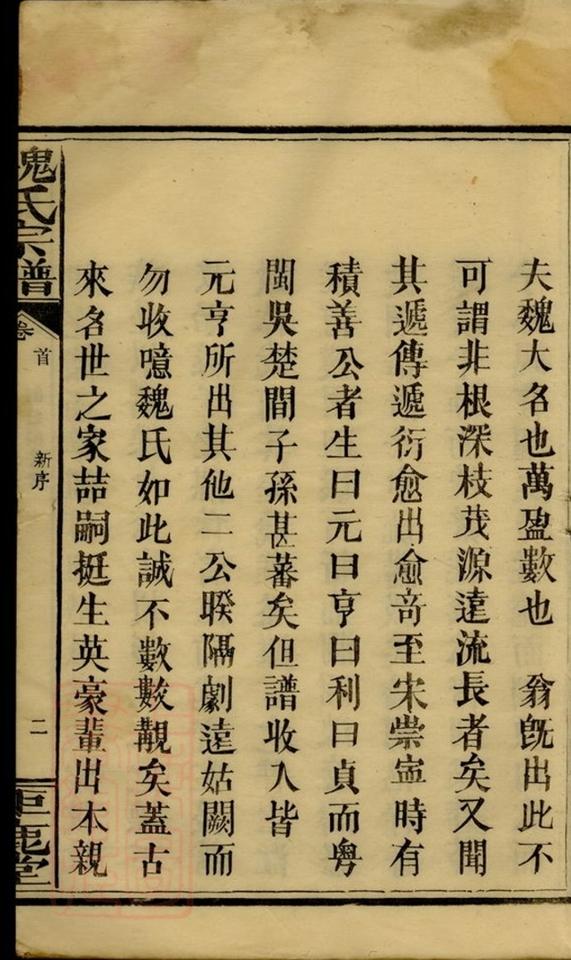 夫魏大名也萬盈數也　翁既出此不
可謂非根深枝茂源遠流長者矣又聞
其遞傳遞衍愈出愈竒至宋崇寧時有
積善公者生曰元曰亨曰利曰貞而粤
閩吳楚間子孫甚蕃矣但譜收入皆
元亨所出其他二公暌隔劇遠姑闕而
勿收噫魏氏如此誠不數數覯矣蓋古
來名世之家喆嗣挺生英豪輩出本親
魏氏宗譜
卷首
新序
二
鉅鹿堂